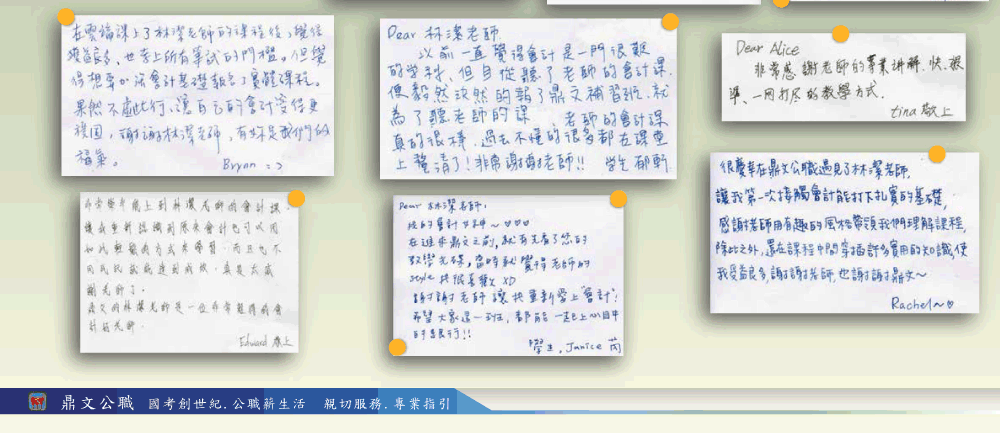 在雲端課上了林潔老師的課程後,覺得
獲益良多,也考上所有筆試的門檻。但覺
得想要加強會計基礎報名了實體課程。
果然不虛此行,讓自己的會計變得更
穩固,謝謝林潔老師,有妳是我們的
福氣。
Bryan
Dear 林潔老師
以前一直覺得會計是一門很難
的學科,但自從聽了老師的會計課
便毅然決然的報了鼎文補習班,就
為了聽老師的課 老師的會計課
真的很棒,過去不懂的很多都在課堂
上釐清了!非常謝謝老師!! 學生 郁軒
Dear Alice
非常感謝老師的專業講解,快、狠、
準、一網打盡的教學方式。
tina 敬上
非常榮幸能上到林潔老師的會計課
讓我重新認識到原來會計也可以用
如此輕鬆的方式來學習,而且也不
用死記就能達到成效,真是太感
謝老師了。
鼎文的林潔老師是一位非常難得的會
計班老師。
Edward 敬上
Dear 林潔老師:
班的會計女神~♡♡♡
在進來鼎文之前,就有先看了您的
教學光碟,當時就覺得老師的
style 我很喜歡 XD
謝謝老師讓我重新愛上"會計"!
希望大家這一班,都能一起上心目中
的銀行!!
學生,Janice 筑
很慶幸在鼎文公職遇見了林潔老師,
讓我第一次接觸會計能打下扎實的基礎,
感謝老師用有趣的風格帶領我們理解課程,
除此之外,還在課程中間穿插許多實用的知識,使
我受益良多,謝謝老師,也謝謝鼎文~
Rachel~♡
鼎文公職 國考創世紀.公職薪生活 親切服務.專業指引